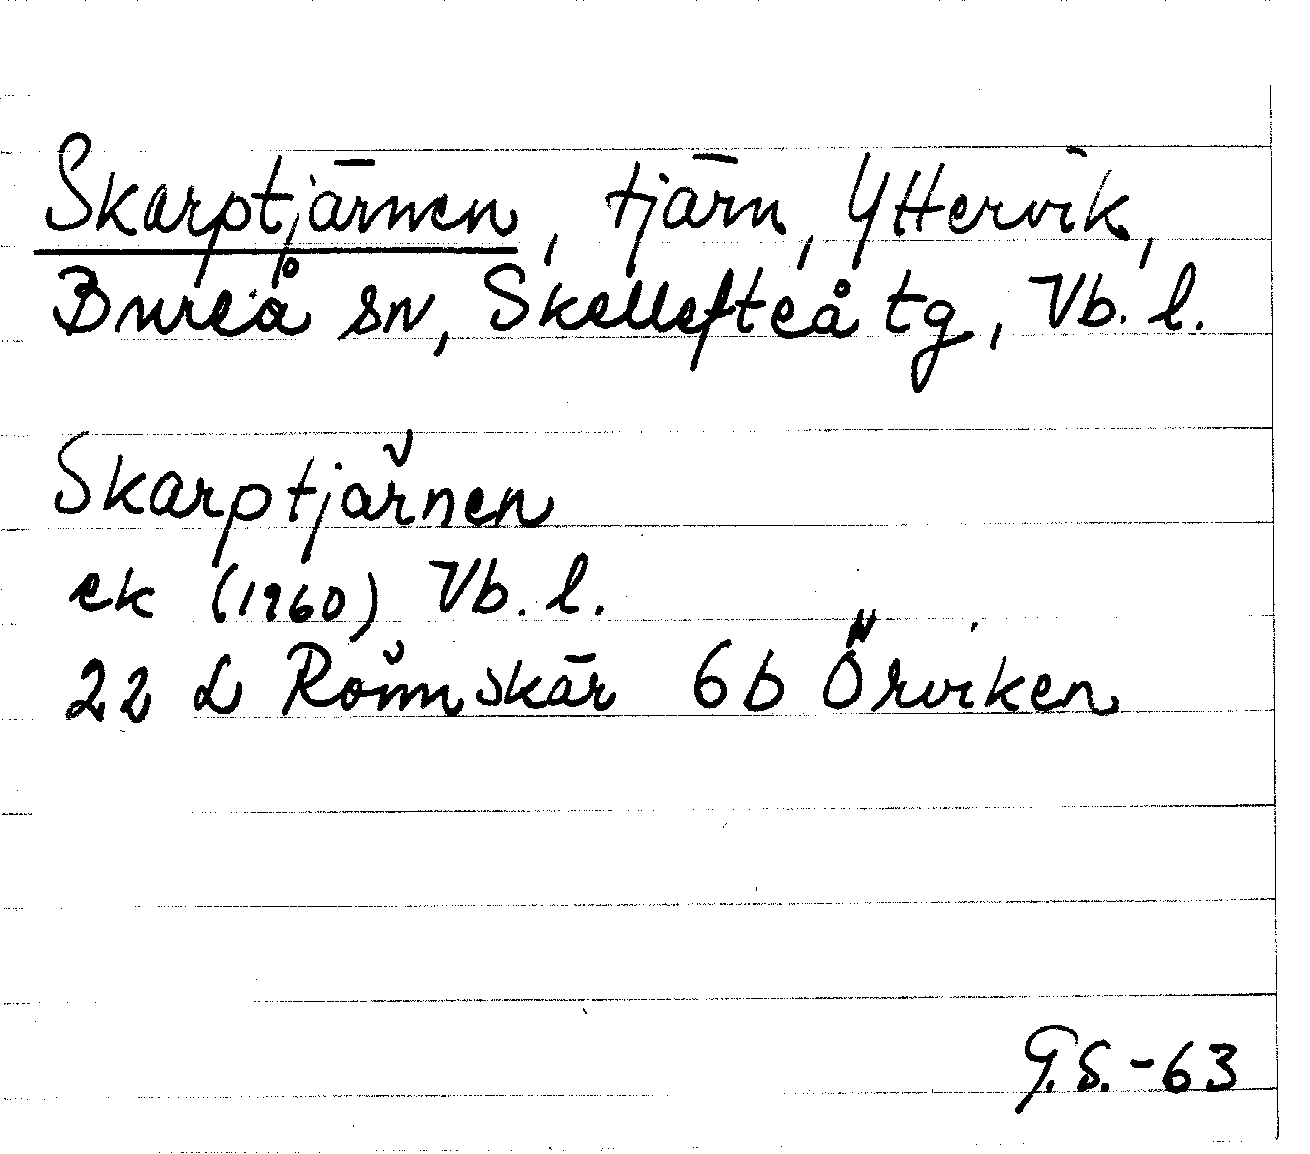 Skarptjärnen, tjärn, Yttervik,
Bureå sn, Skellefteå tg, Vb. l.
Skarptjärnen
ek (1960) Vb. l.
22 L Rönnskär 6b Örviken
G.S.-63